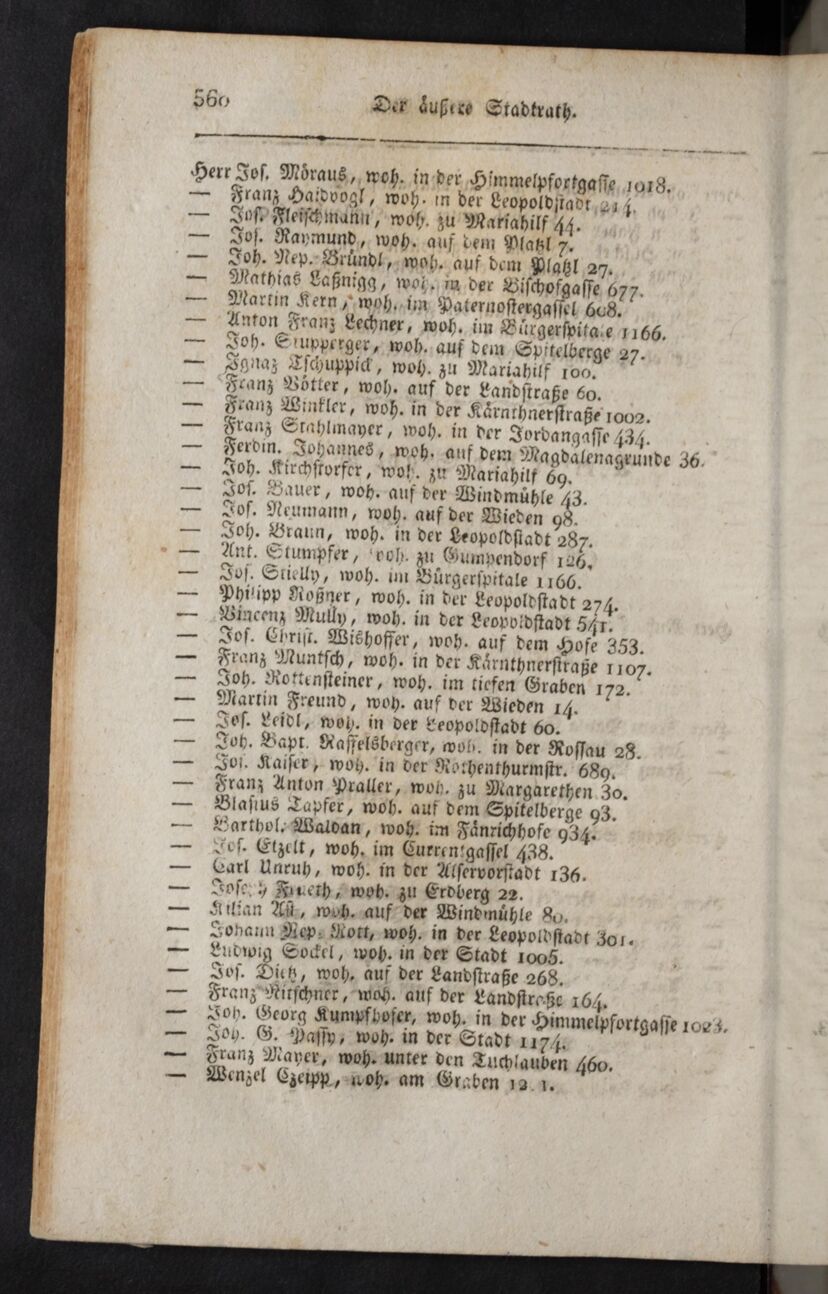 560 Der äußere Stadtrath.
Herr Jos. Möraus, woh. in der Himmelpfortgasse 1018.
— Franz Haidvogl, woh. in der Leopoldstadt 214.
— Jos. Fleischmann, woh. zu Mariahilf 44.
— Jos. Raymund, woh. auf dem Platzl 7.
— Joh. Nep. Bründl, woh. auf dem Platzl 27.
— Mathias Laßnigg, woh. in der Bischofgasse 677.
— Martin Kern, woh. im Paternostergassel 608.
— Anton Franz Lechner, woh. im Bürgerspitale 1166.
— Joh. Stupperger, woh. auf dem Spitelberge 27.
— Ignaz Tschuppick, woh. zu Mariahilf 100.
— Franz Vötter, woh. auf der Landstraße 60.
— Franz Winkler, woh. in der Kärnthnerstraße 1002.
— Franz Stahlmayer, woh. in der Jordangasse 434.
— Ferdin. Johannes, woh. auf dem Magdalenagrunde 36.
— Joh. Kirchstorfer, woh. zu Mariahilf 69.
— Jos. Bauer, woh. auf der Windmühle 43.
— Jos. Neumann, woh. auf der Wieden 98.
— Joh. Braun, woh. in der Leopoldstadt 287.
— Ant. Stumpfer, woh. zu Gumpendorf 126.
— Jos. Stielly, woh. im Bürgerspitale 1166.
— Philipp Roßner, woh. in der Leopoldstadt 274.
— Vincenz Mully, woh. in der Leopoldstadt 541.
— Jos. Christ. Wishoffer, woh. auf dem Hofe 353.
— Franz Muntsch, woh. in der Kärnthnerstraße 1107.
— Joh. Rottensteiner, woh. im tiefen Graben 172.
— Martin Freund, woh. auf der Wieden 14.
— Jos. Leidl, woh. in der Leopoldstadt 60.
— Joh. Bapt. Raffelsberger, woh. in der Rossau 28.
— Jos. Kaiser, woh. in der Rothenthurmstr. 689.
— Franz Anton Praller, woh. zu Margarethen 30.
— Blasius Tapfer, woh. auf dem Spitelberge 93.
— Barthol. Waldan, woh. im Fänrichhofe 934.
— Jos. Etzelt, woh. im Currentgassel 438.
— Carl Unruh, woh. in der Alservorstadt 136.
— Joseph woh. zu Erdberg 22.
— Kilian Ast, woh. auf der Windmühle 80.
— Johann Nep. Rott, woh. in der Leopoldstadt 301.
— Ludwig Sockel, woh. in der Stadt 1005.
— Jos. Dietz, woh. auf der Landstraße 268.
— Franz Ritschner, woh. auf der Landstraße 164.
— Joh. Georg Kumpfhofer, woh. in der Himmelpfortgasse 1023.
— Joh. G. Passy, woh. in der Stadt 1174.
— Franz Mayer, woh. unter den Tuchlauben 460.
— Wenzel Czeipp, woh. am Graben